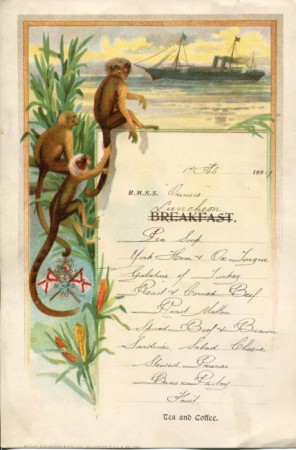 1st Feb 189
R.M.S.S. "Orinoco"
Luncheon
BREAKFAST.
Pea Soup
York Ham & Ox Tongue
Galatine of Turkey
Roast & Corned Beef
Roast Mutton
Spiced Beef & Brawn
Sardines Salad Cheese
Stewed Prunes
Buns & Pastry
Fruit
Tea and Coffee.